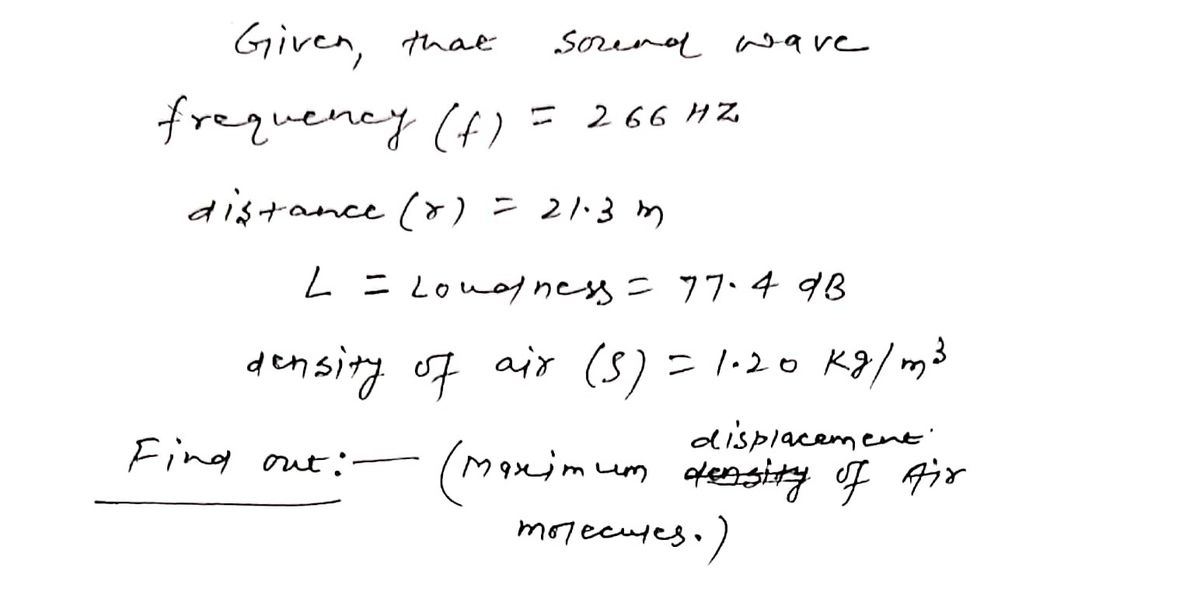 Given, that sound wave
frequency (f) = 266 HZ
distance (r) = 21.3 m
L = Loudness = 77.4 dB
density of air (S) = 1.20 Kg/m³
displacement
Find out:— (Maximum density of Air
molecules.)